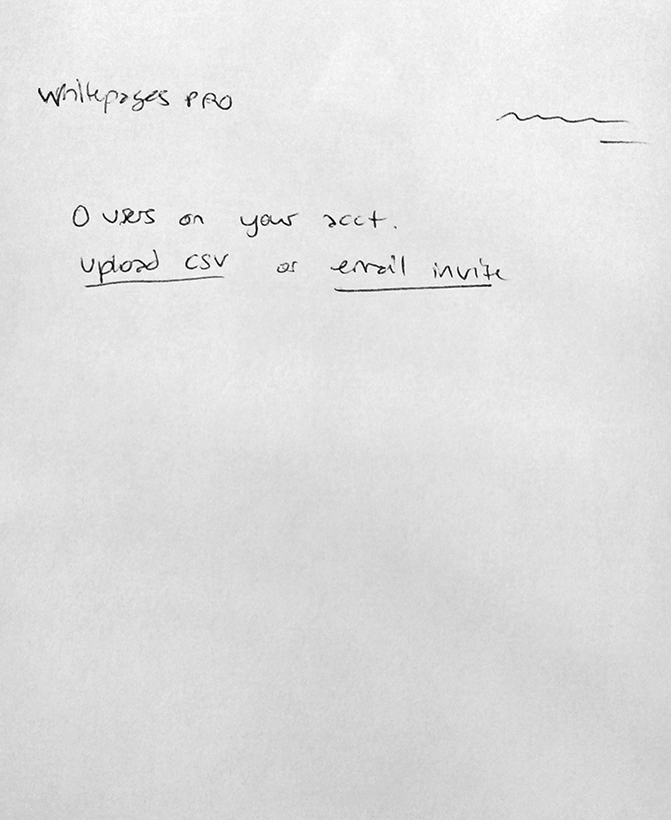 Whitepages PRO
0 users on your acct.
upload csv or email invite